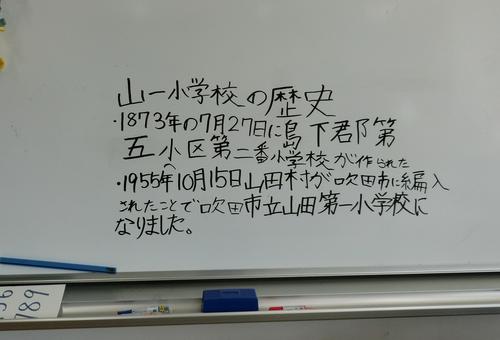 山一小学校の歴史
・1873年の7月27日に島下郡第
五小区第二番小学校が作られた
へ
・1955年10月15日山田村が吹田市に編入
されたことで吹田市立山田第一小学校に
なりました。
789